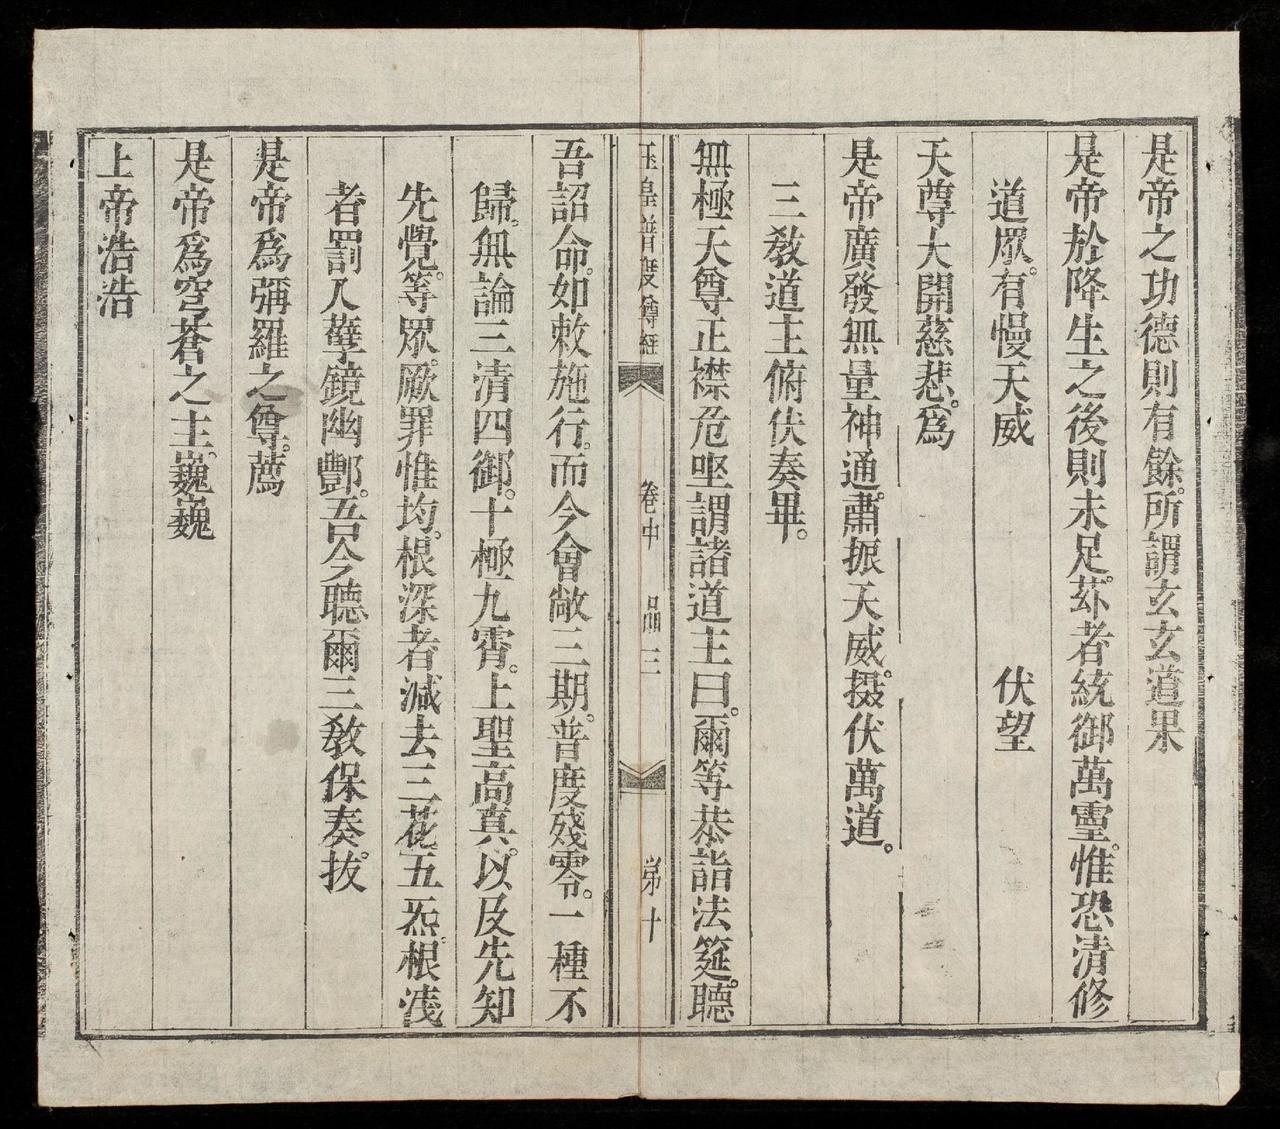 是帝之功德則有餘。所謂玄玄道果
是帝於降生之後則未足。茲者統御萬靈。惟恐清修
道眾。有慢天威 伏望
天尊大開慈悲。為
是帝廣發無量神通。肅振天威。摄伏萬道。
三教道主俯伏奏畢。
無極天尊正襟危坐謂諸道主曰。爾等恭詣法筵。聽
玉皇普度尊經 卷中 品三 第十
吾詔命。如敕施行。而今會啟三期。普度殘零。一種不
歸。無論三清四御。十極九霄。上聖高真。以及先知
先覺。等眾。厥罪惟均。根深者減去三花五炁。根淺
者罰入孽鏡幽酆。吾今聽爾三教保奏。拔
是帝爲彌羅之尊。薦
是帝爲穹蒼之主。巍巍
上帝浩浩